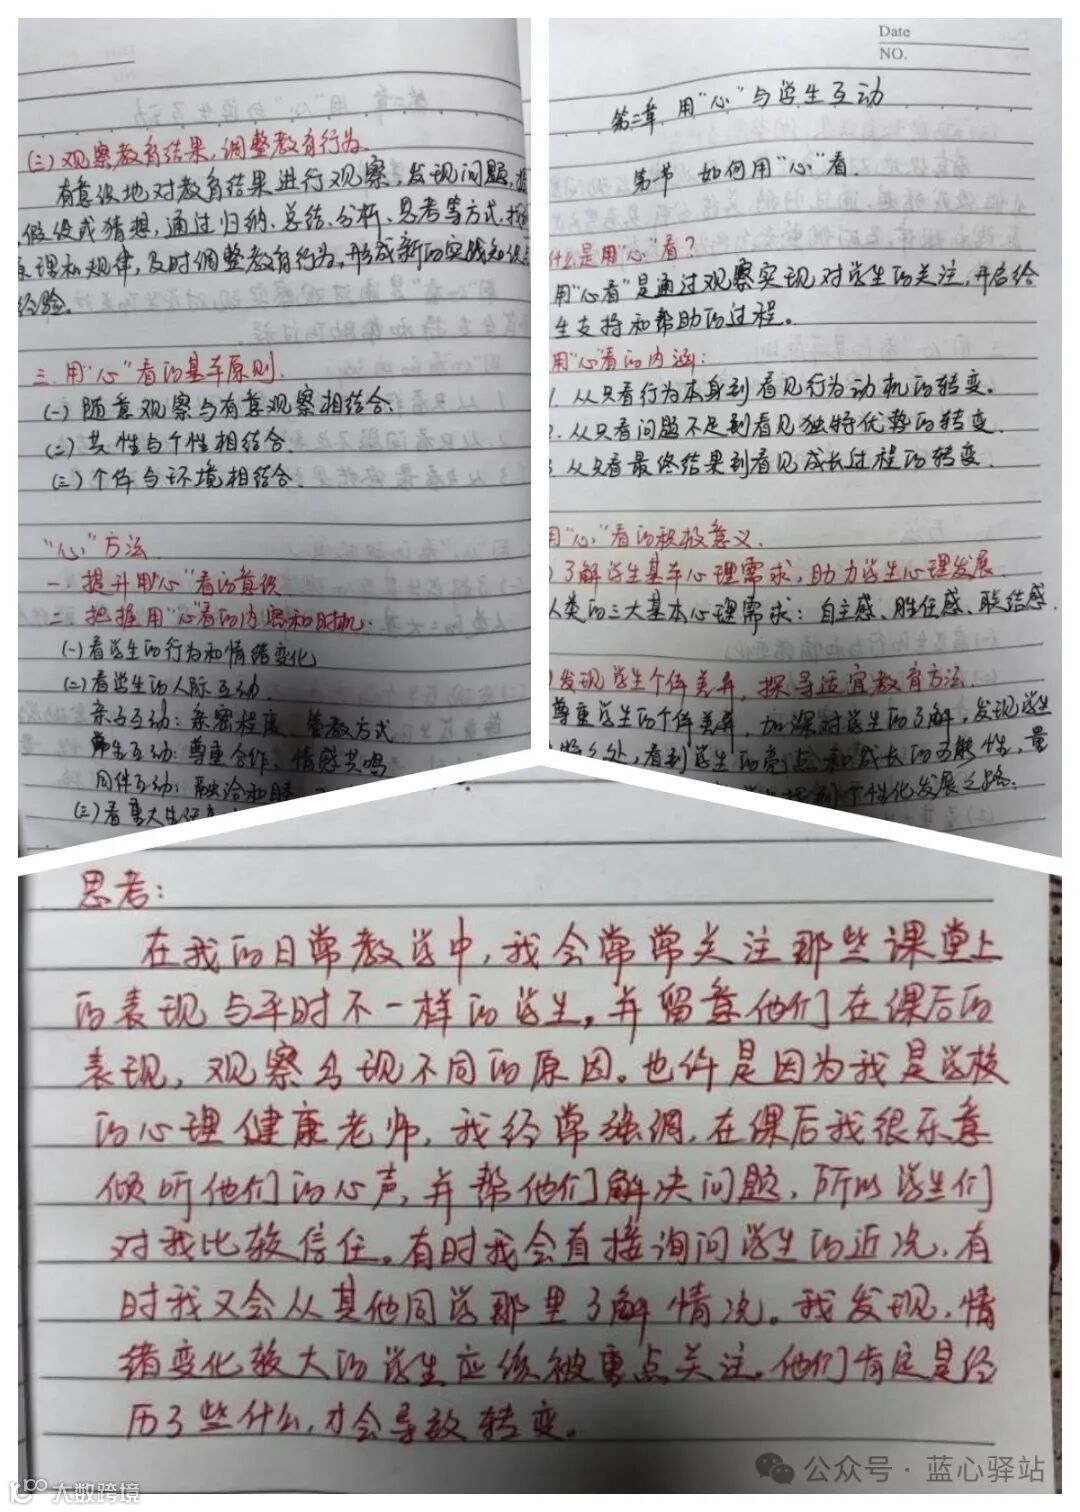 (三)观察教育结果,调整教育行为.
有意识地对教育结果进行观察,发现问题,提
假设或猜想,通过归纳、总结、分析、思考等方式,找
原理和规律,及时调整教育行为,形成新的实践知识
经验.
三.用"心"看的基本原则.
(一)随意观察与有意观察相结合.
(二)共性与个性相结合.
(三)个体与环境相结合.
"心"方法.
一.提升用"心"看的意识.
二.把握用"心"看的内容和时机.
(一)看学生的行为和情绪变化
(二)看学生的人际互动.
亲子互动:亲密程度、管教方式
师生互动:尊重合作、情感共鸣
同伴互动:融洽和睦、
(三)看重大生活
Date
NO.
第二章 用"心"与学生互动
第一节 如何用"心"看.
什么是用"心"看?
用"心看"是通过观察实现对学生的关注,开启给
生支持和帮助的过程。
用"心"看的内涵:
1. 从只看行为本身到看见行为动机的转变。
2. 从只看问题不足到看见独特优势的转变.
3. 从只看最终结果到看见成长过程的转变.
用"心"看的积极意义.
)了解学生基本心理需求,助力学生心理发展.
人类的三大基本心理需求:自主感、胜任感、联结感.
)发现学生个体差异,探寻适宜教育方法.
尊重学生的个体差异,加深对学生的了解,发现学生
之处,看到学生的亮点和成长的可能性,量
找到个性化发展之路.
思考:
在我的日常教学中,我会常常关注那些课堂上
的表现与平时不一样的学生,并留意他们在课后的
表现,观察出现不同的原因。也许是因为我是学校
的心理健康老师,我经常强调,在课后我很乐意
倾听他们的心声,并帮他们解决问题,所以学生们
对我比较信任。有时我会直接询问学生的近况,有
时我又会从其他同学那里了解情况。我发现,情
绪变化较大的学生应该被重点关注。他们肯定是经
历了些什么,才会导致转变。
公众号·蓝心驿站
大数跨境